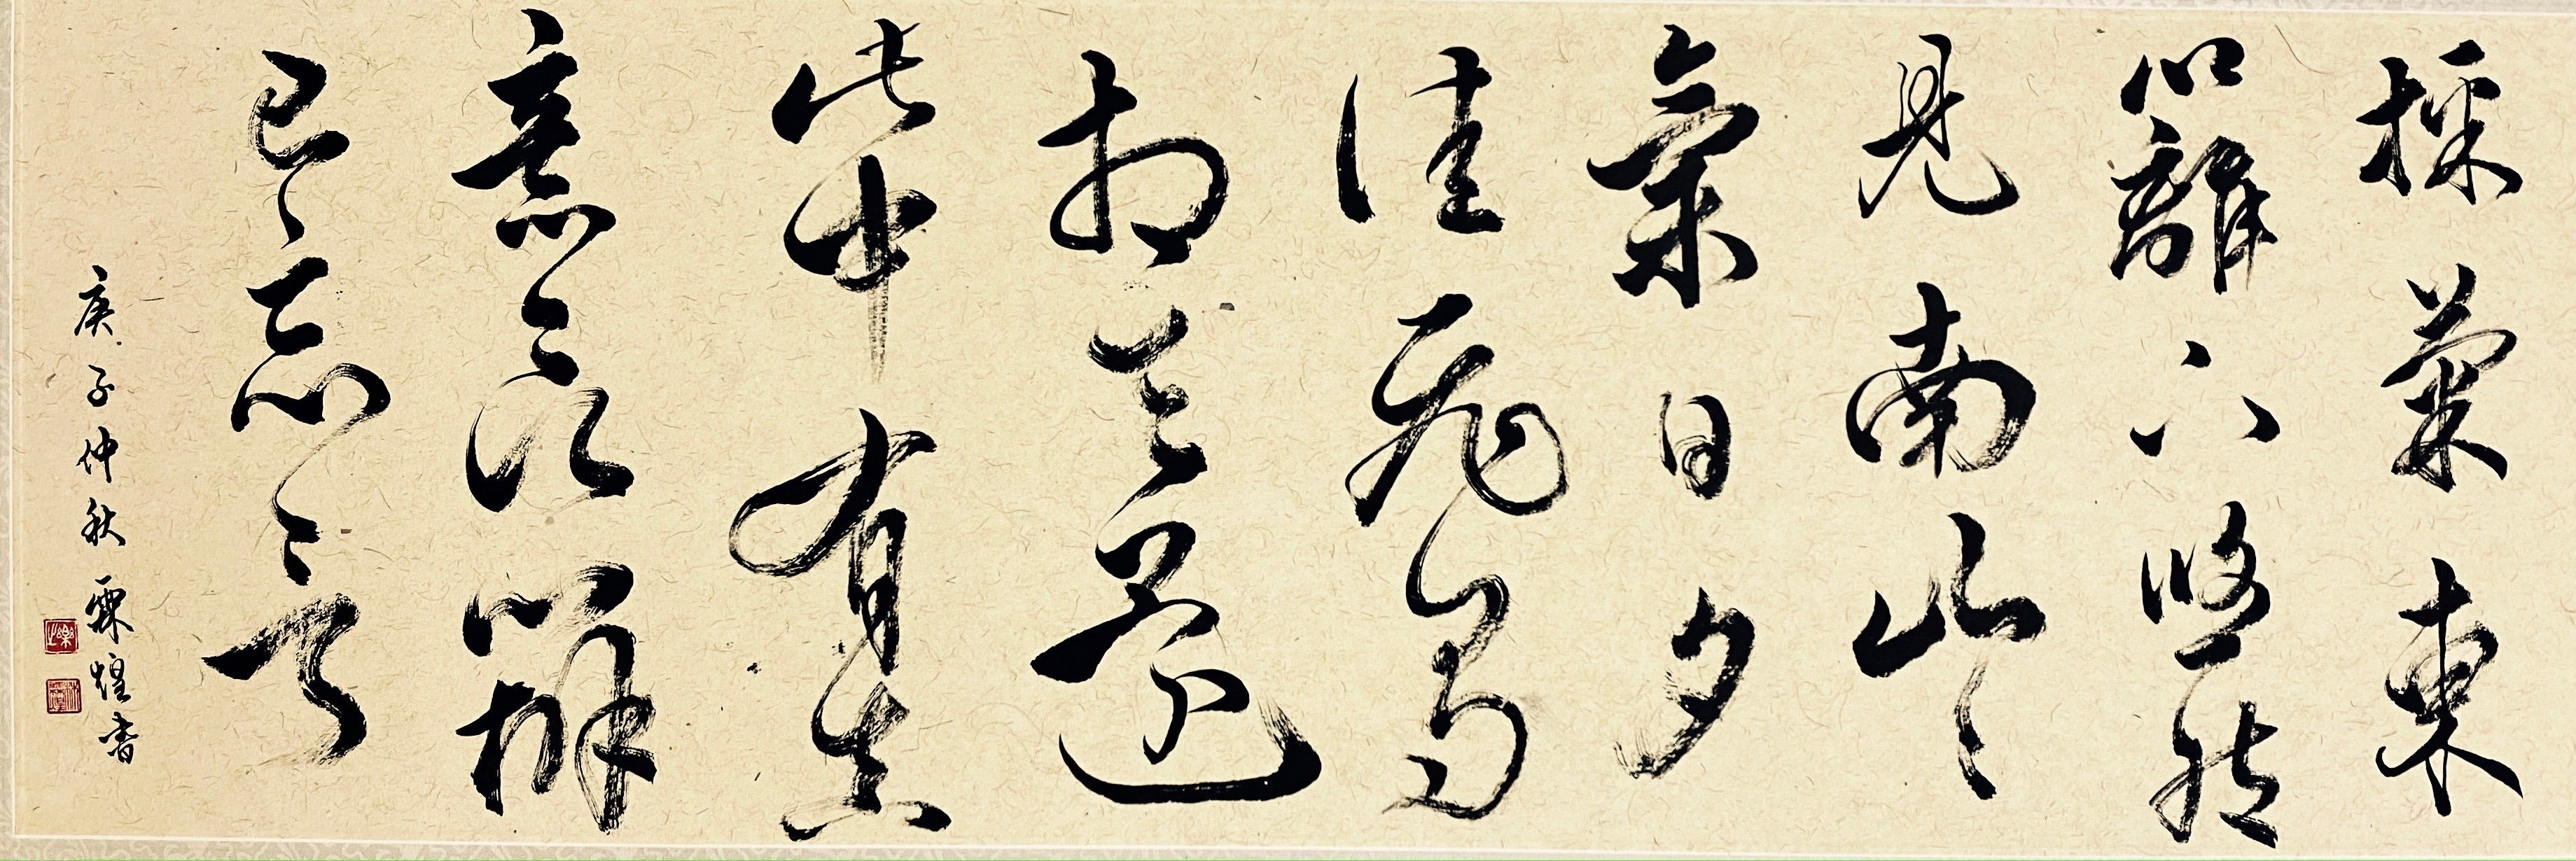 採菊東
籬下悠然
見南山〻
氣日夕
佳飛鳥
相與還
此中有真
意欲辨
已忘言
庚子仲秋霖煌書